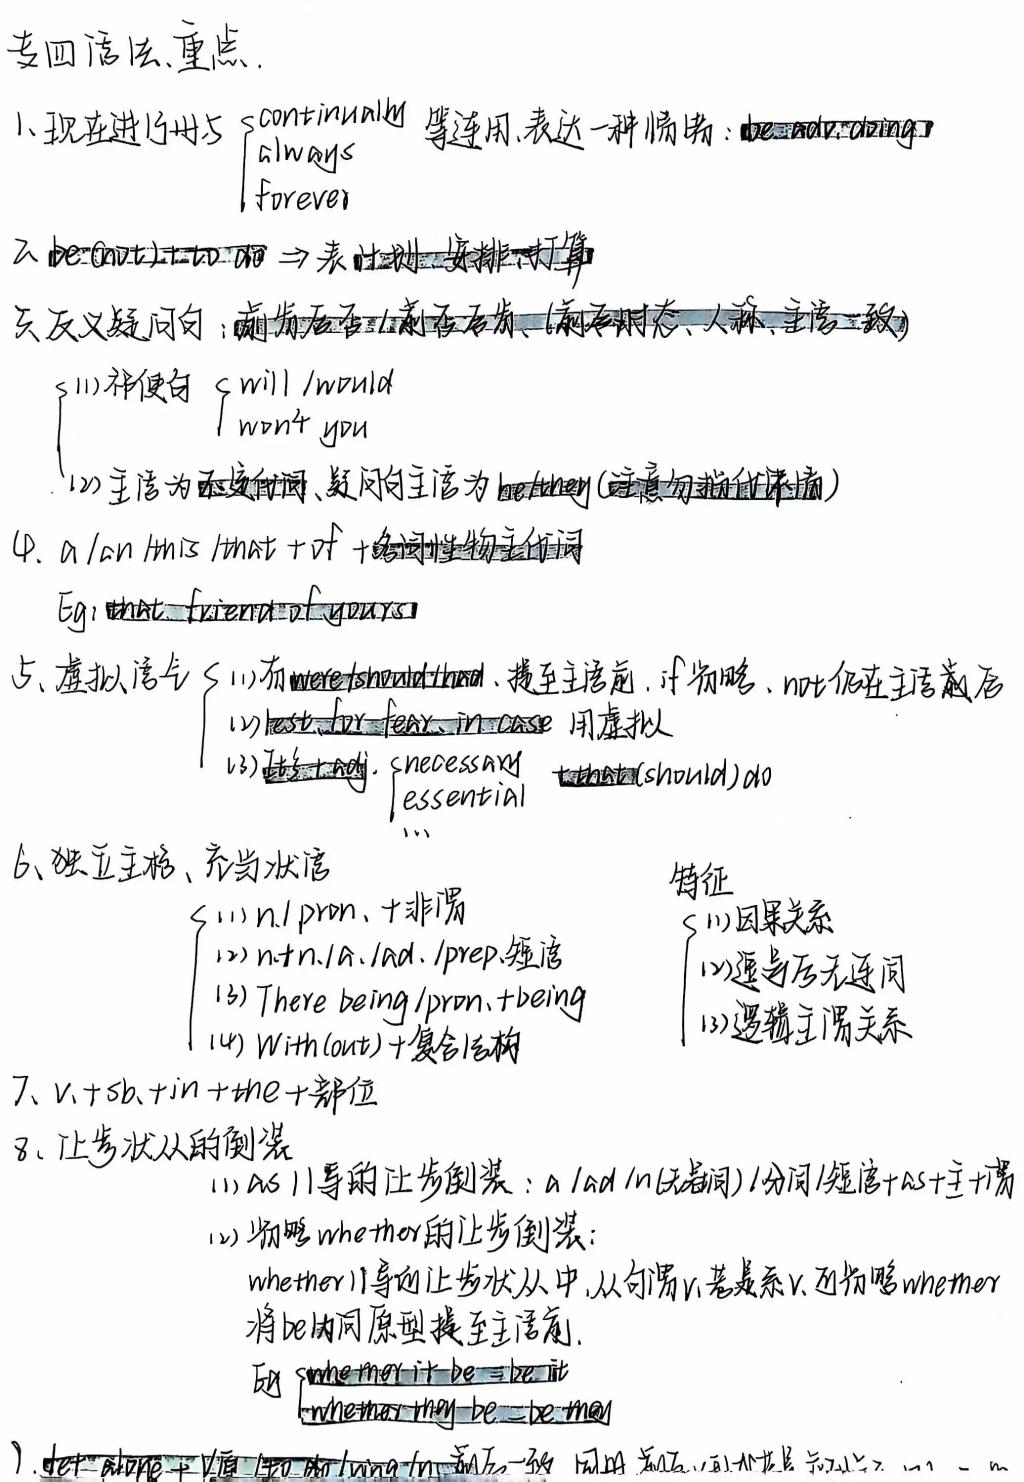 专四语法重点.
1、现在进行时与 continually 等连用、表达一种情绪：be adv. doing
always
forever
2. be (not) + to do ⇒ 表计划、安排、打算
3. 反义疑问句：前肯后否/前否后肯、(前后时态、人称、主语一致)
(1) 祈使句 will /would
won't you
(2) 主语为不定代词、疑问句主语为 he/they (注意勿指代
4. a /an /this /that + of + 名词性物主代词
Eg: that friend of yours
5、虚拟语气 (1) 有 were/should/had、提至主语前. if 省略、not 仍在主语前后
(2) lest, for fear, in case 用虚拟
(3) It's + adj. necessary + that (should) do
essential
...
6、独立主格、充当状语
特征
(1) n./pron. + 非谓 (1) 因果关系
(2) n.+n./a./ad./prep.短语 (2) 逗号后无连词
(3) There being/pron.+being (3) 逻辑主谓关系
(4) With(out) + 复合结构
7、v.+sb.+in+the+部位
8、让步状从的倒装
(1) as 引导的让步倒装：a /ad /n(无冠词) /分词/短语+as+主+谓
(2) 省略 whether 的让步倒装：
whether引导的让步状从中,从句谓v.若是系v.可省略whether
将be动词原型提至主语前.
Eg whether it be = be it
whether they be = be they
9. let alone + V原 /to do /ving /n 前后一致